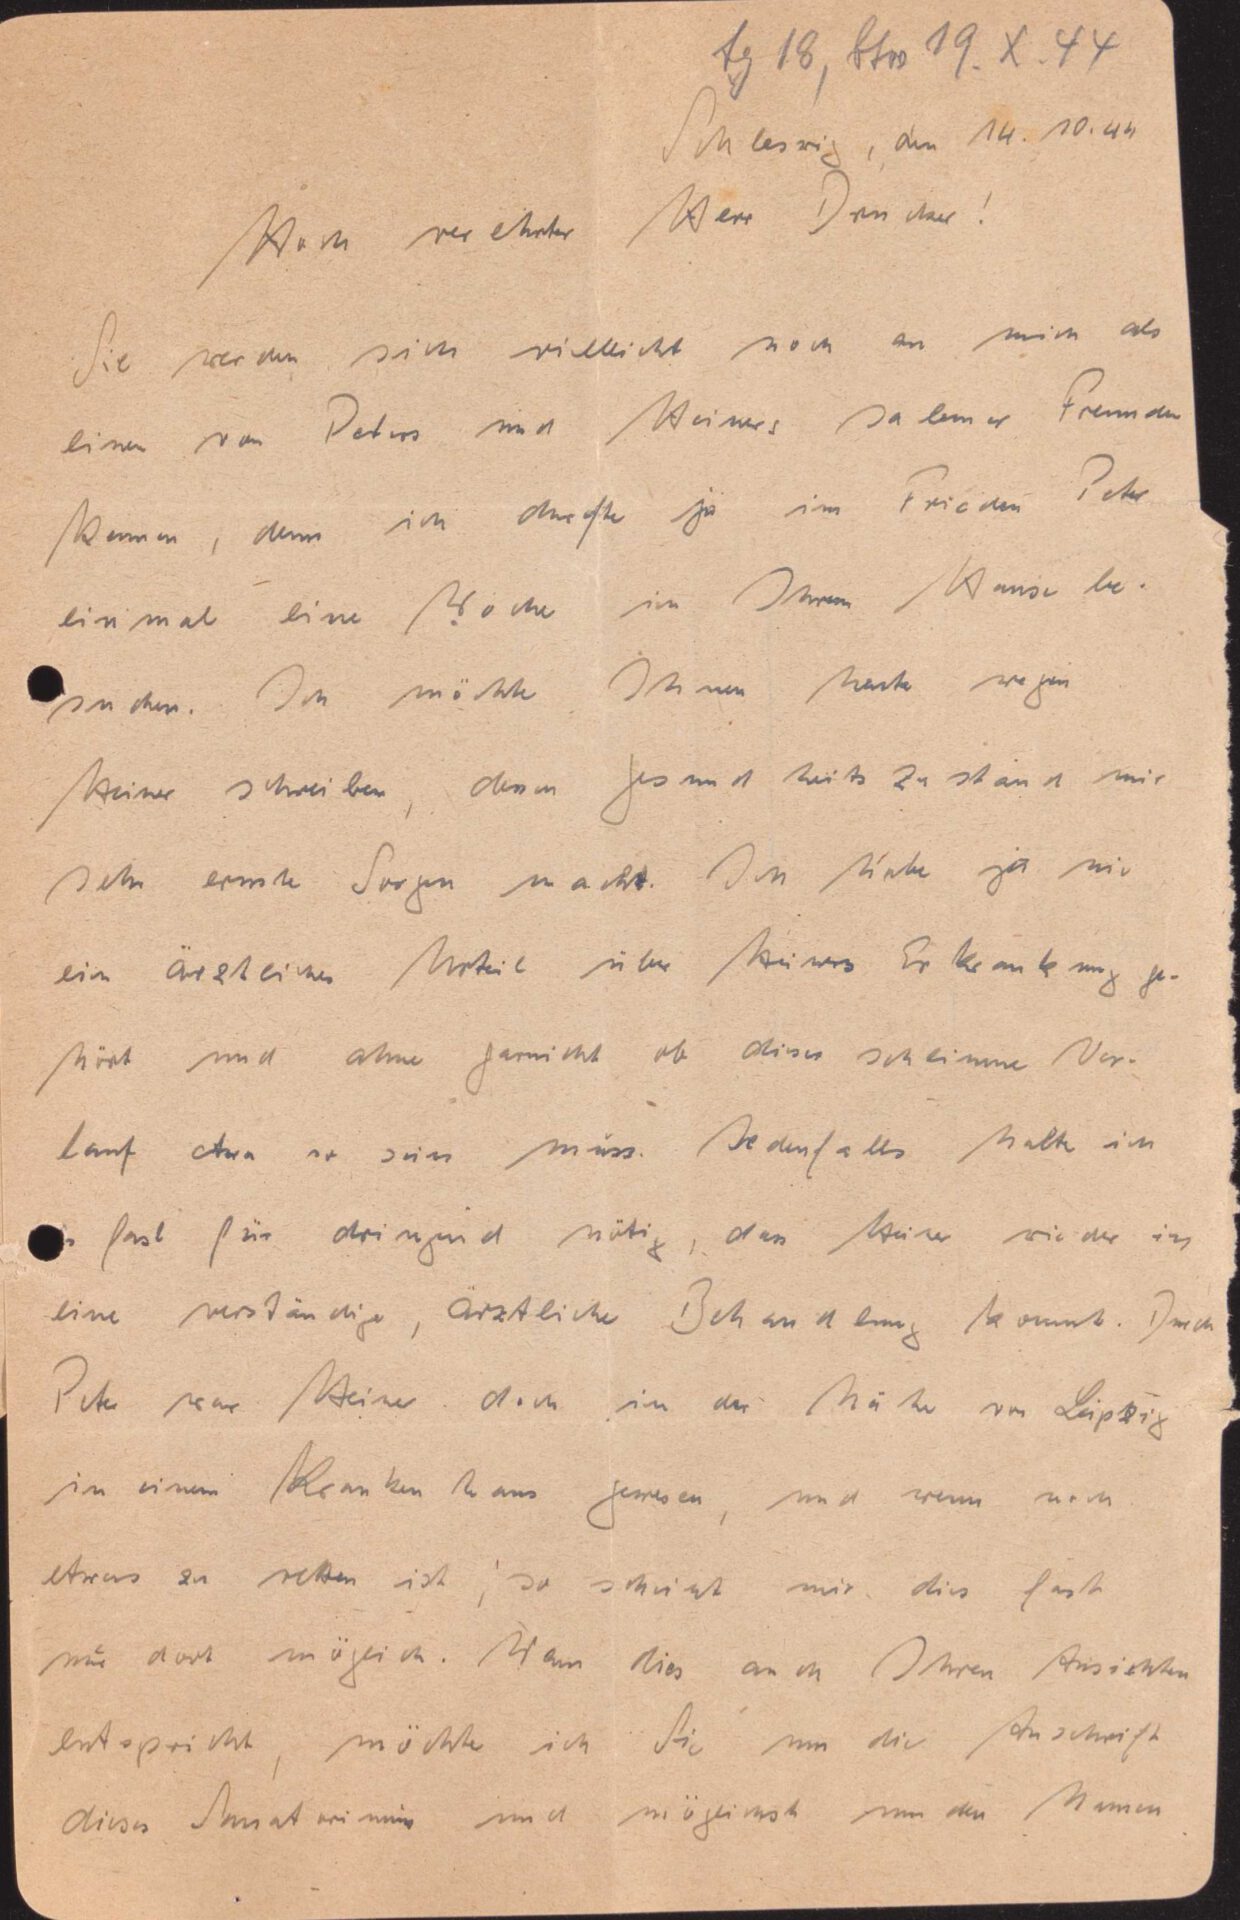 18, 19. X. 44
Schleswig, den 14. 10. 44
Hoch verehrter Herr Drucker!
Sie werden sich vielleicht noch an mich als
einen von Peters und Heiners Salemer Freunden
kennen, denn ich durfte ja im Frieden Peter
einmal eine Woche in Ihrem Hause be-
suchen. Ich möchte Ihnen heute wegen
Heiner schreiben, dessen Gesundheitszustand mir
sehr ernste Sorgen macht. Ich habe ja nie
ein ärztliches Urteil über Heiners Erkrankung ge-
hört und ahne garnicht ob dieser schlimme Ver-
lauf etwa so sein muss. Jedenfalls halte ich
es fast für dringend nötig, dass Heiner wieder in
eine verständige, ärztliche Behandlung kommt. Durch
Peter war Heiner doch in der Nähe von Leipzig
in einem Krankenhaus gewesen, und wenn noch
etwas zu retten ist, so scheint mir dies fast
nur dort möglich. Wenn dies auch Ihren Ansichten
entspricht, möchte ich Sie um die Anschrift
dieses Sanatoriums und möglichst um den Namen